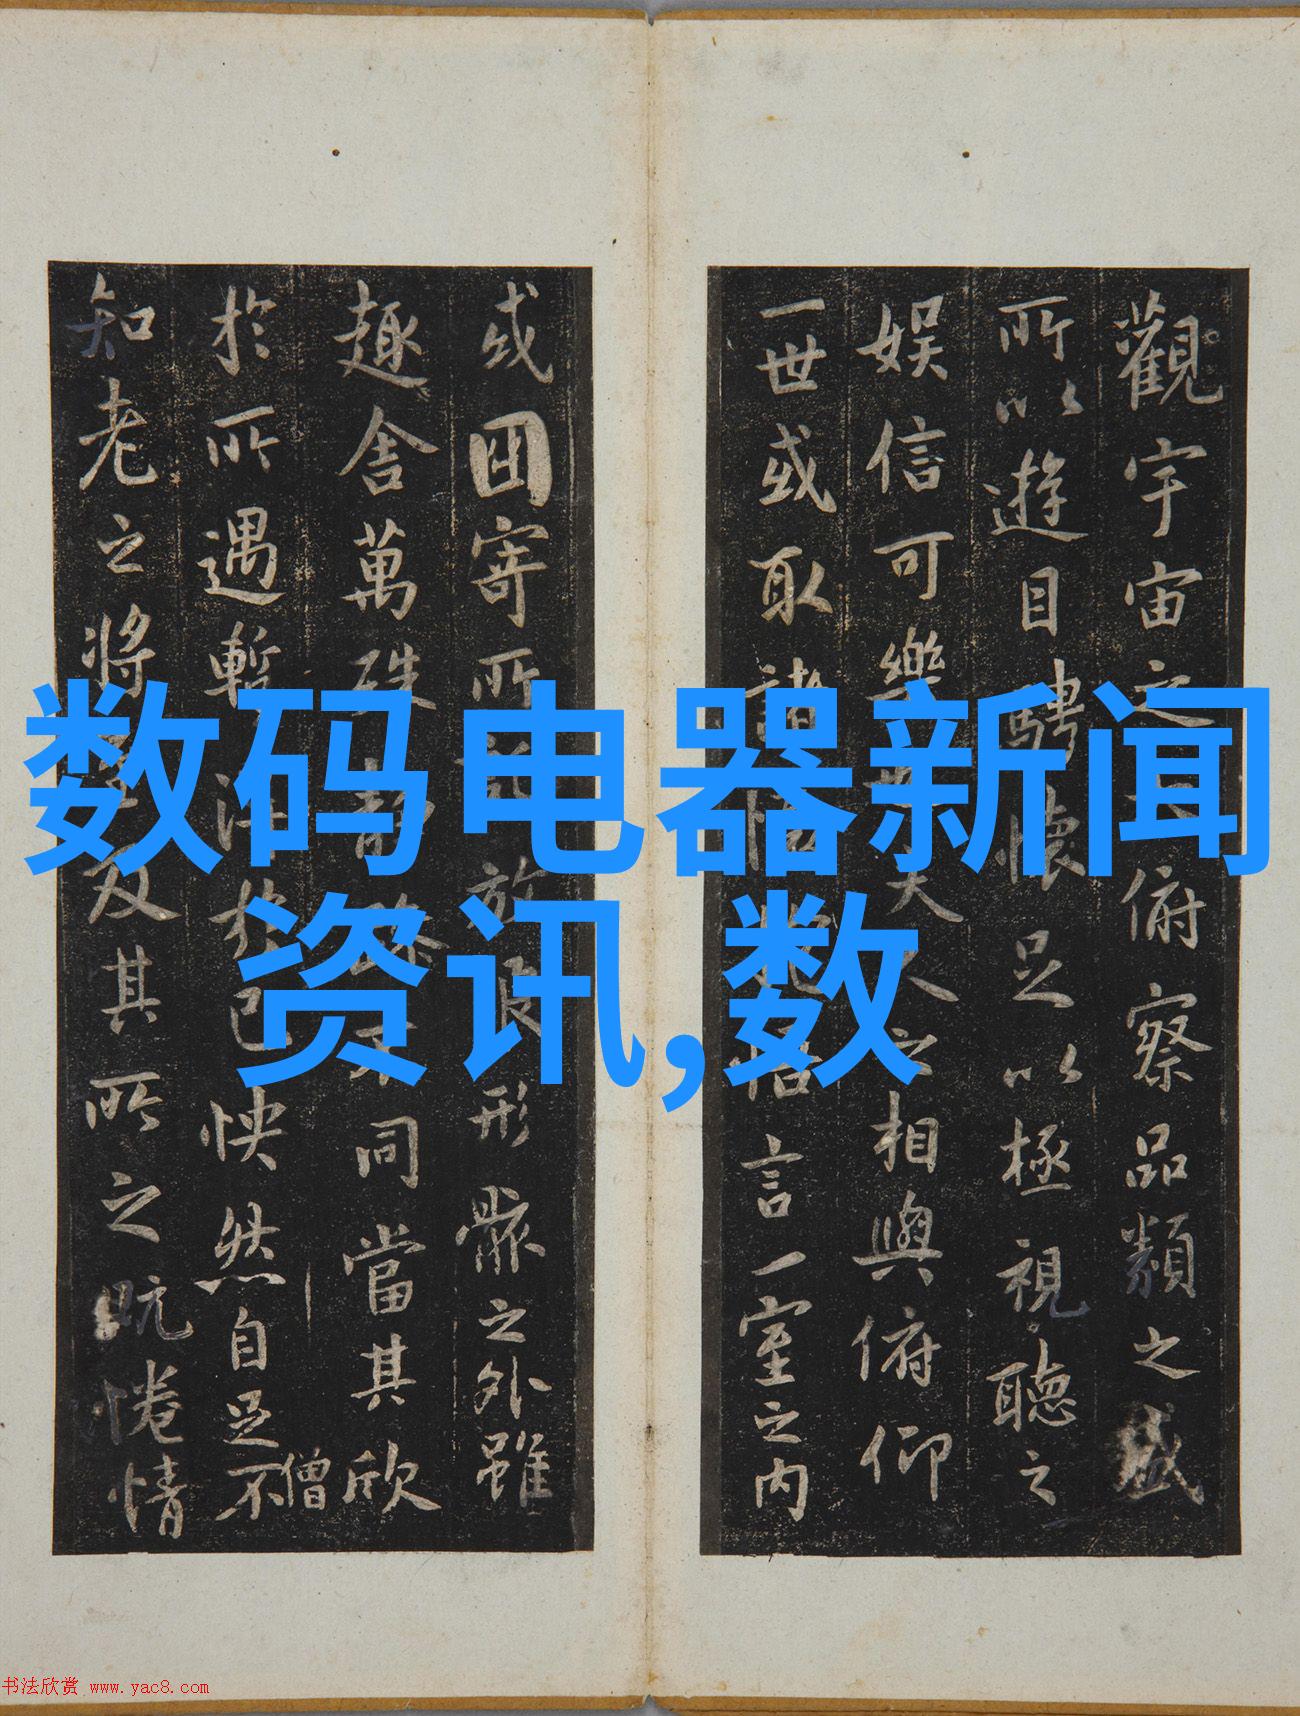 数码电器新闻
资讯,数
觀宇宙之俯察品類之盛
所以遊目騁懷足以極視聽之
娛信可樂也夫人之相與俯仰
一世或取諸悟言一室之内
或因寄所託放浪形骸之外雖
趣舍萬殊靜躁不同當其欣
僧
於所遇暫得於己怏然自足不
知老之將及其所之既惓情
书法欣赏 www.yac8.com